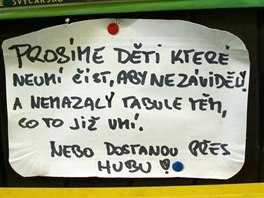 ŠVÝCARSKO
PROSÍME DĚTI KTERÉ
NEUMÍ ČÍST, ABY NEZÁVIDĚLY
A NEMAZALY TABULE TĚM,
CO TO JIŽ UMÍ.
NEBO DOSTANOU PŘES
HUBU!